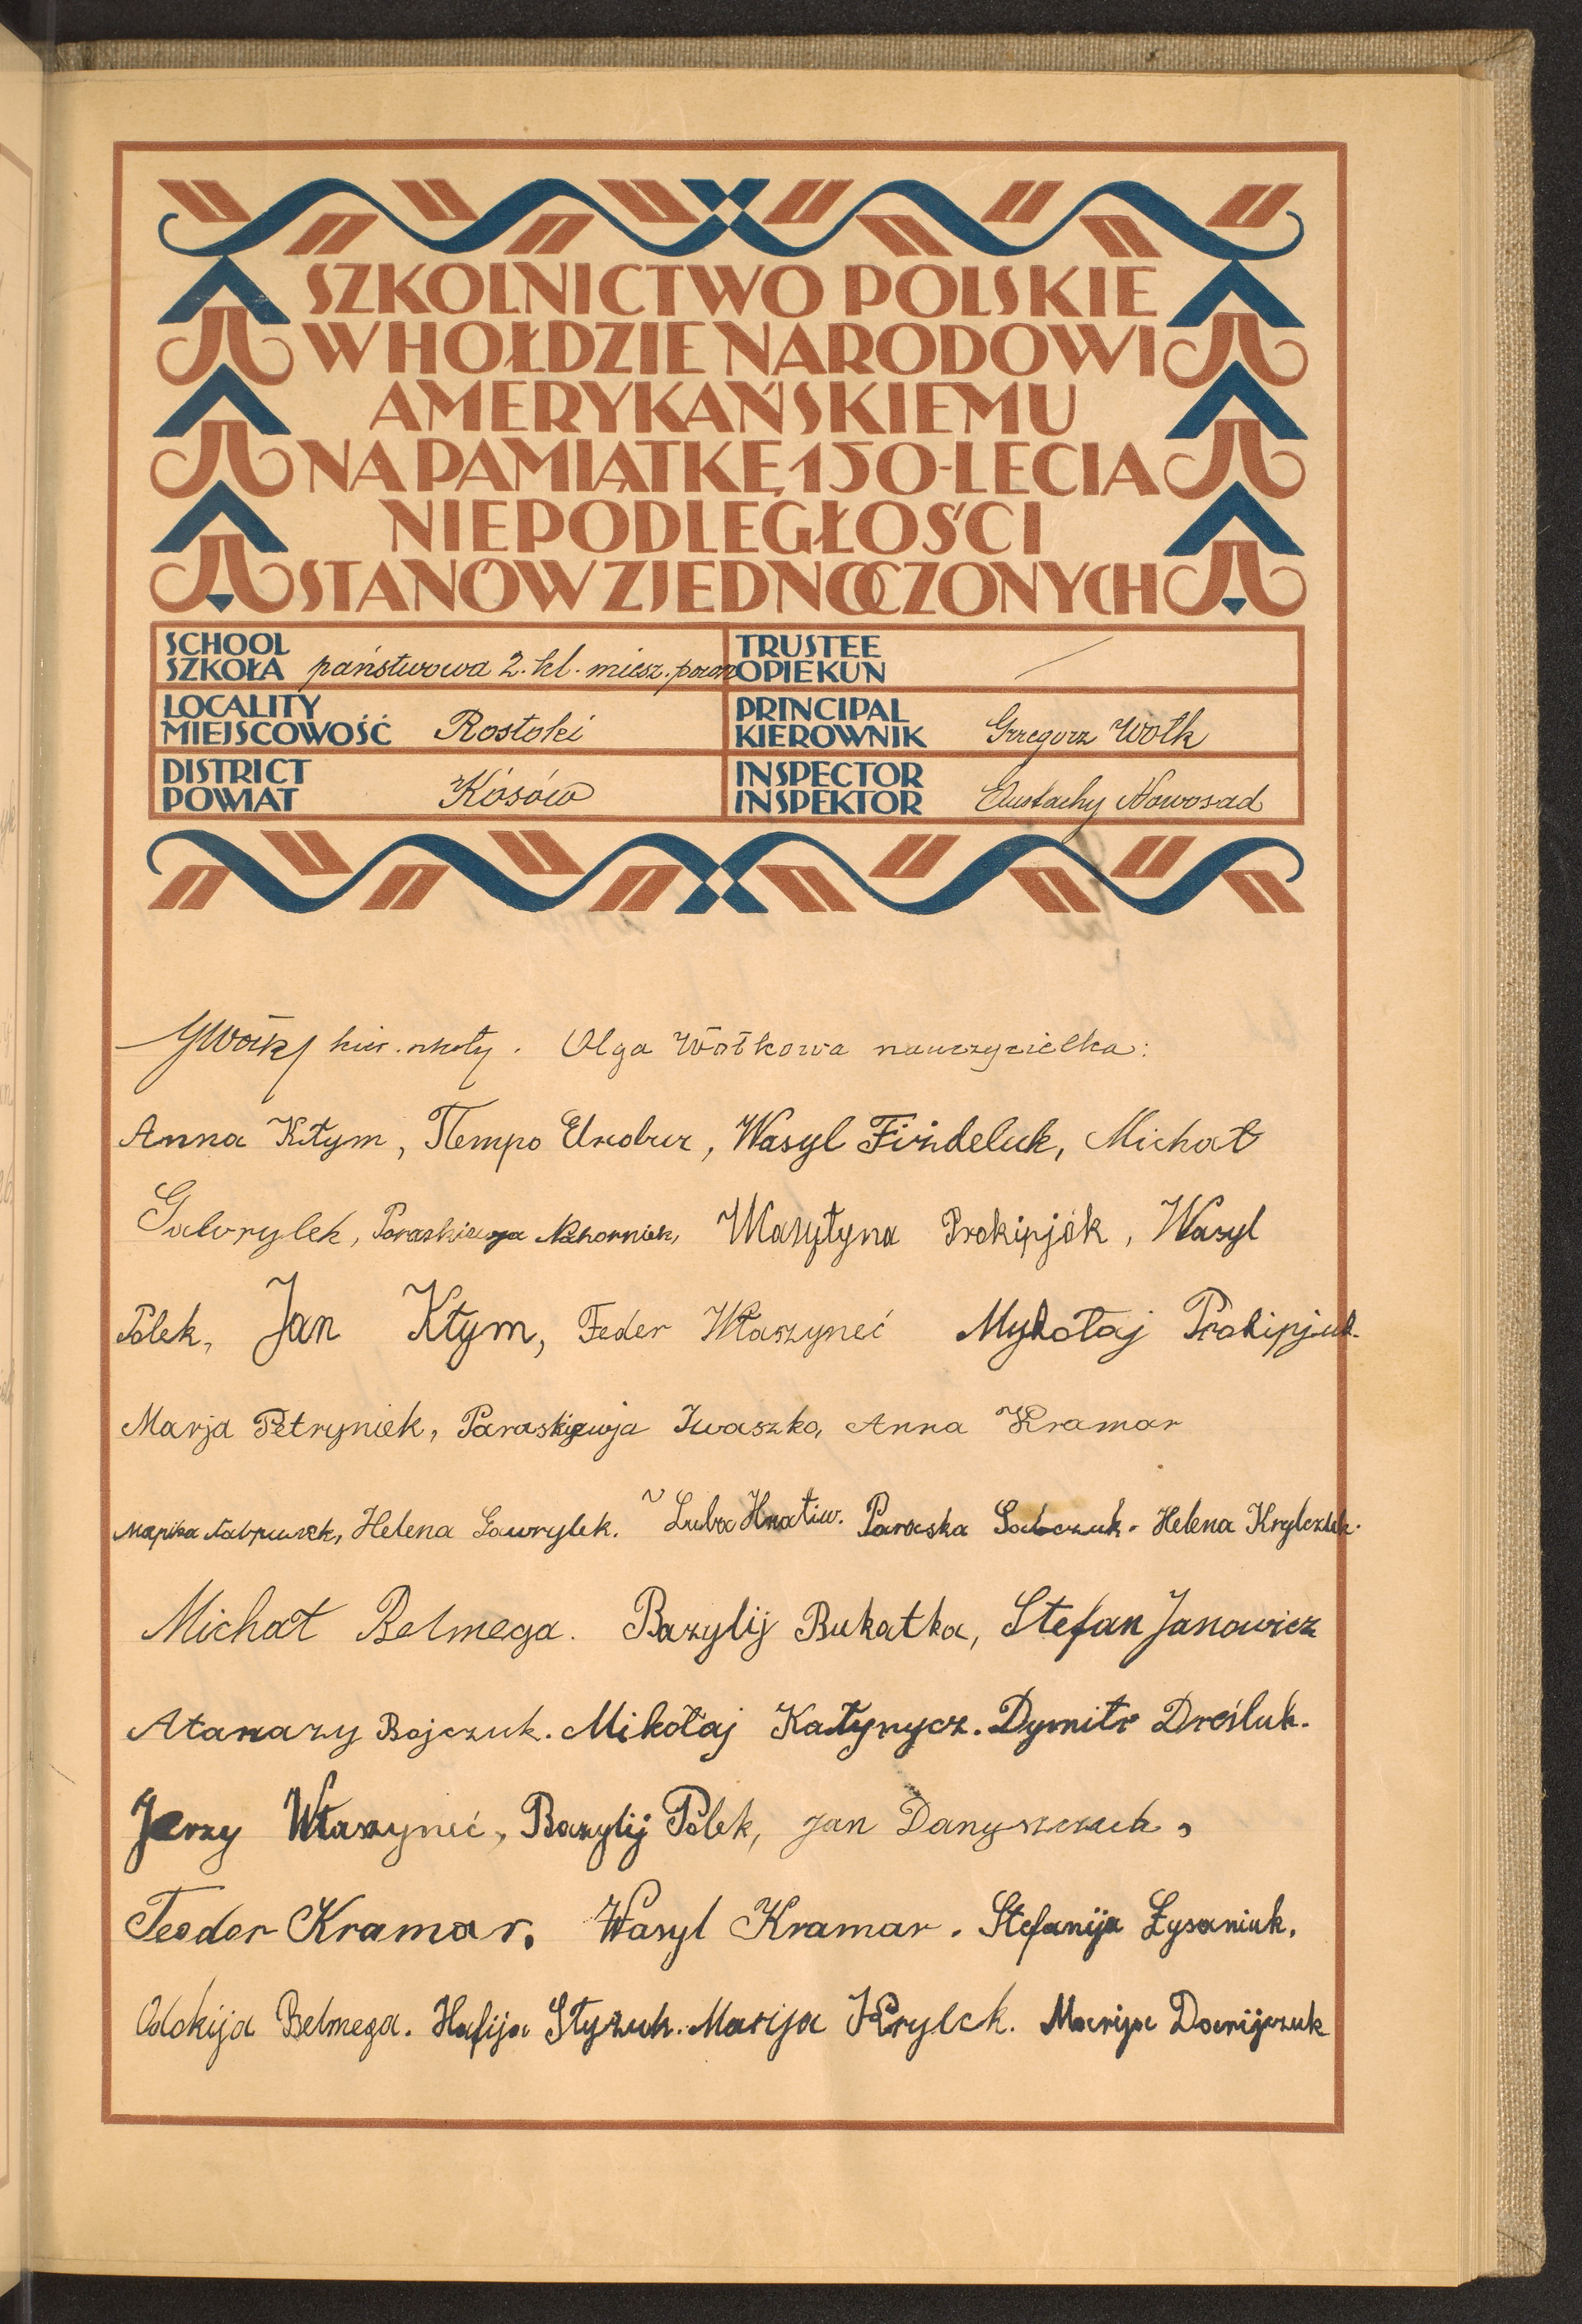 SZKOLNICTWO POLSKIE
W HOŁDZIE NARODOWI
AMERYKAŃSKIEMU
NA PAMIĄTKĘ 150-LECIA
NIEPODLEGŁOŚCI
STANÓW ZJEDNOCZONYCH
SCHOOL
SZKOŁA państwowa 2. kl. miesz.
TRUSTEE
OPIEKUN
LOCALITY
MIEJSCOWOŚĆ Rostoki
PRINCIPAL
KIEROWNIK Grzegorz Wołk
DISTRICT
POWIAT Kosów
INSPECTOR
INSPEKTOR Eustachy Nowosad
GWołk kier. szkoły. Olga Wołkowa nauczycielka:
Anna Kłym, Петро, Wasyl Findeluk, Michał
Gawrylek, Paraskiewja, Wasyłyna Prokipjuk, Wasyl
Polek, Jan Kłym, Feder Właszyneć Mykołaj Prokipjuk.
Marja Petryniek, Paraskiewja Iwaszko, Anna Kramar
Марійка, Helena Gawrylek. Luba Hnatiw. Paraska Sabczuk. Helena
Michał Belmega. Bazylij Bukatka, Stefan Janowicz
Atanazy Bojczuk. Mikołaj Katynycz. Dymitr Dreśluk.
Jerzy Właszyneć, Bazylij Polek, Jan Danyszczuk,
Teodor Kramar, Wasyl Kramar. Stefanija Łysaniuk.
Odokija Belmega. Hafija Styzuk. Marija Krylek. Marija Doerijczuk